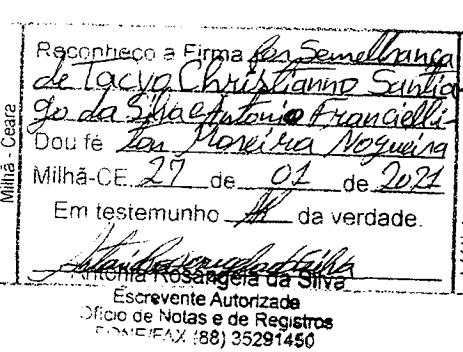 Reconheço a Firma por Semelhança
de Tacyo Christianno Santia-
go da Silva e Antonio Francielli-
Dou fé Ton Moreira Nogueira
Milhã-CE. 27 de 01 de 2021
Em testemunho da verdade.
Antonia Rosangela da Silva
Escrevente Autorizada
Ofício de Notas e de Registros
FONE/FAX (88) 35291450
Milhã - Ceara